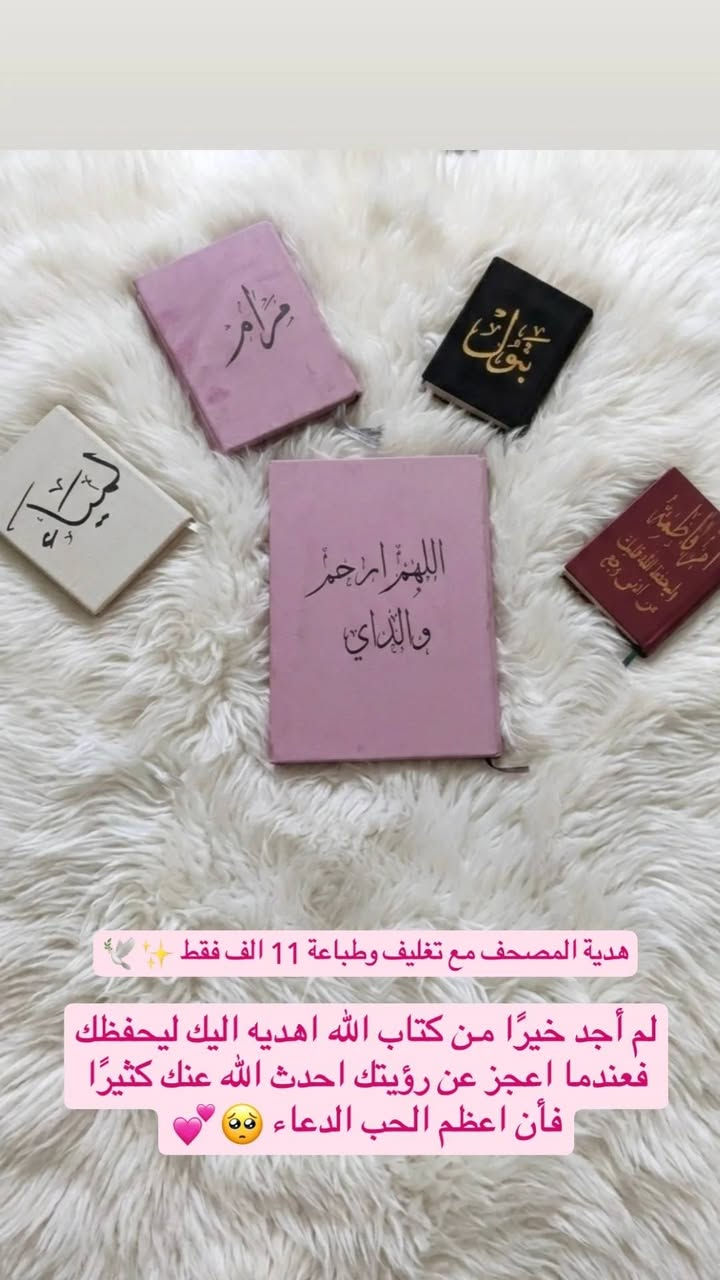 مرام
بتول
لمياء
اللهم ارحم
والداي
ام فاطمة
هدية المصحف مع تغليف وطباعة 11 الف فقط ✨🕊️
لم أجد خيرًا من كتاب الله اهديه اليك ليحفظك
فعندما اعجز عن رؤيتك احدث الله عنك كثيرًا
فأن اعظم الحب الدعاء 🥺💕